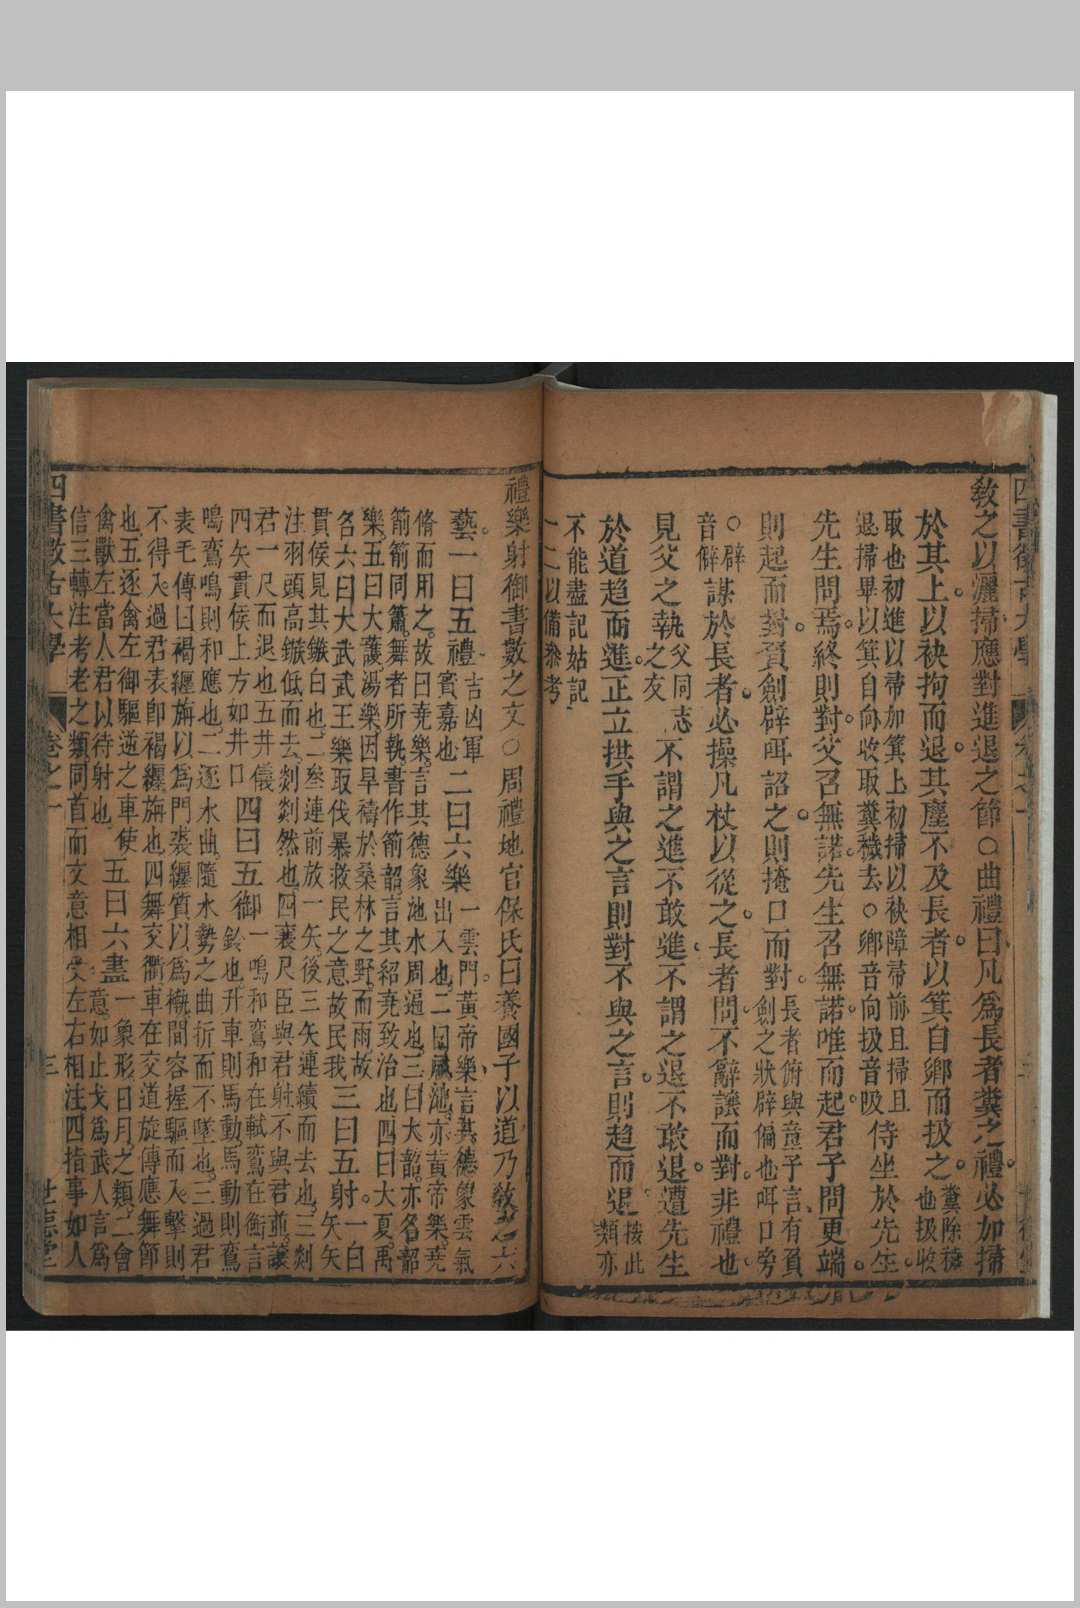 教之以灑掃應對進退之節○曲禮曰凡爲長者糞之禮必加掃
於其上以袂拘而退其塵不及長者以箕自鄉而扱之糞除穢也扱收
取也初進以帚加箕上初掃以袂障帚前且掃且
退掃畢以箕自向收取糞穢去○鄉音向扱音吸侍坐於先生
先生問焉終則對父召無諾先生召無諾唯而起君子問更端
則起而對負劍辟咡詔之則掩口而對長者俯與童子言有負劍之狀辟偏也咡口旁
○辟音僻謀於長者必操几杖以從之長者問不辭讓而對非禮也
見父之執父同志之友不謂之進不敢進不謂之退不敢退遭先生
於道趨而進正立拱手與之言則對不與之言則趨而退按此類亦
不能盡記姑記
一二以備參考
禮樂射御書數之文○周禮地官保氏曰養國子以道乃敎之六
藝一曰五禮吉凶軍賓嘉也二曰六樂一雲門黃帝樂言其德象雲氣
出入也二曰咸池亦黃帝樂堯
脩而用之故曰堯樂言其德象池水周遍也三曰大韶亦名韶
箾箾同簫舞者所執書作箾韶言其紹堯致治也四曰大夏禹
樂五曰大濩湯樂因旱禱於桑林之野而雨故
名六曰大武武王樂取伐暴救民之意故民我三曰五射一白矢矢
貫侯見其鏃白也二叁連前放一矢後三矢連續而去也三剡
注羽頭高鏃低而去剡剡然也四襄尺臣與君射不與君並讓
君一尺而退也五井儀
四矢貫侯上方如井口四曰五御一鳴和鸞和在軾鸞在衡言
鈴也升車則馬動馬動則鸞
鳴鸞鳴則和應也二逐水曲隨水勢之曲折而不墜也三過君
表毛傳曰褐纏旃以爲門裘纏質以爲槸間容握驅而入擊則
不得入過君表卽褐纏旃也四舞交衢車在交道旋傳應舞節
也五逐禽左御驅逆之車使
禽獸左當人君以待射也五曰六書一象形日月之類二會
意如止戈爲武人言爲
信三轉注考老之類同首而文意相受左右相注四指事如人
四書徵古大學
卷之一
三
世德堂